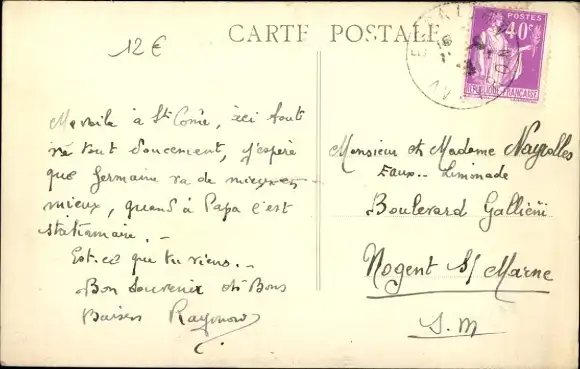 12 €
CARTE POSTALE
POSTES
40c
Me voila à St Come, ici tout
va tout doucement, j'espère
que Germaine va de mieux en
mieux, quand à Papa c'est
stationnaire. -
Est-ce que tu viens. -
Bon Souvenir et Bons
Baisers Raymond
Monsieur et Madame Nayrolles
Eaux.. Limonade
Boulevard Galliéni
Nogent S/ Marne
S. M